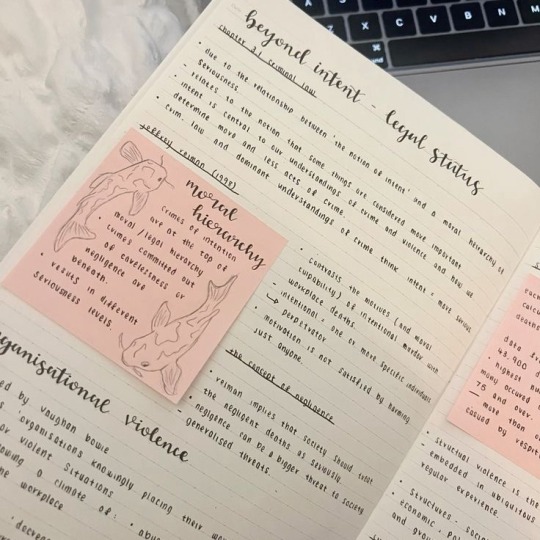 beyond intent - legal status
chapter 2.1 criminal law
• due to the relationship between 'the notion of intent' and a moral hierarchy of
seriousness
- relates to the notion that some things are considered more important
• intent is central to our understandings of crime and violence and how we
determine more and less acts of crime.
• crim. law and dominant understandings of crime think intent = more serious
jeffery reiman (1998)
moral
hierarchy
crimes of intention
are at the top of
moral / legal hierarchy
• crimes committed out
of carelessness or
negligence are
beneath.
• results in different
seriousness levels.
• contrasts the motives (and moral
culpability) of intentional murder with
workplace deaths.
- intentional = one or more specific individuals
↳ perpetrator
• motivation is not satisfied by harming
just anyone.
the concept of negligence
• reiman implies that society should treat
the negligent deaths as seriously.
• negligence can be a bigger threat to society
- generalised threats.
organisational violence
by vaughan bowie
'organisations knowingly placing their
or violent situations
a climate of
workplace
data
43,900
• highest
many occured
75 and over.
more than
caused by
• structural violence is the
embedded in ubiquitous
regular experience.
• structures -
economic,
and
Z
X
C
V
B
N
M
⌘